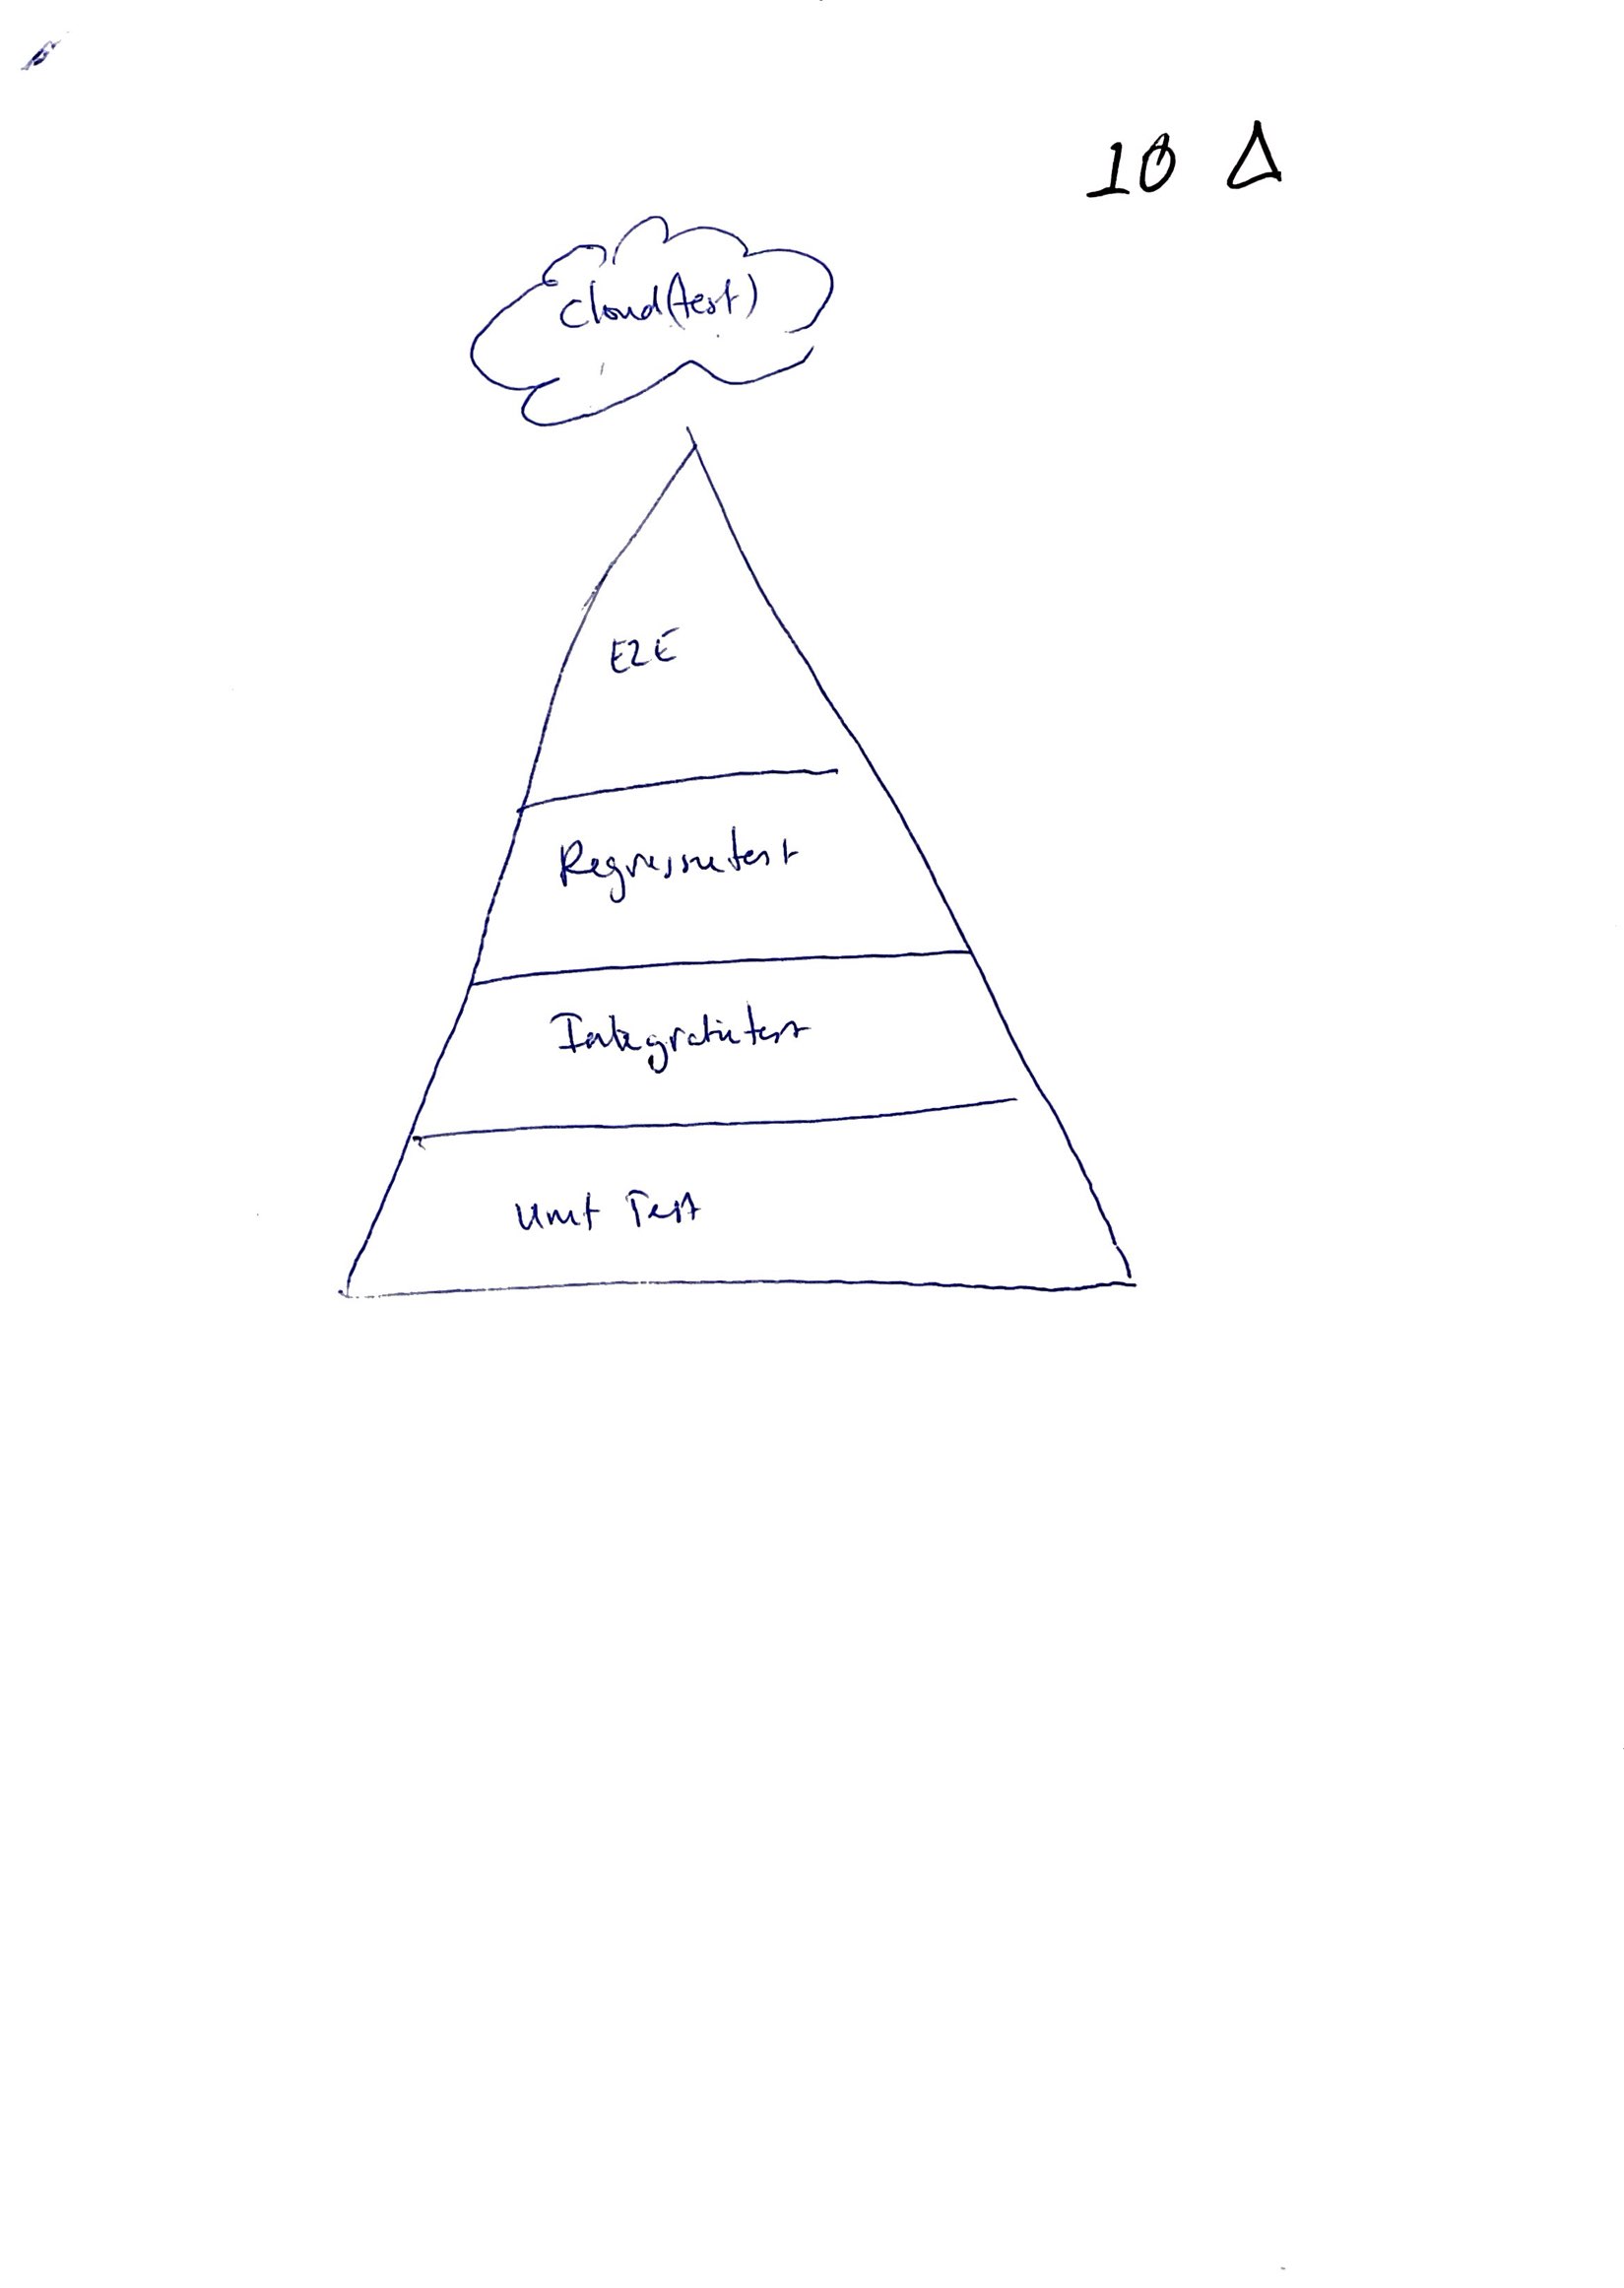 10 Δ
Cloud(test)
E2E
Regressiontest
Integrationtest
Unit Test